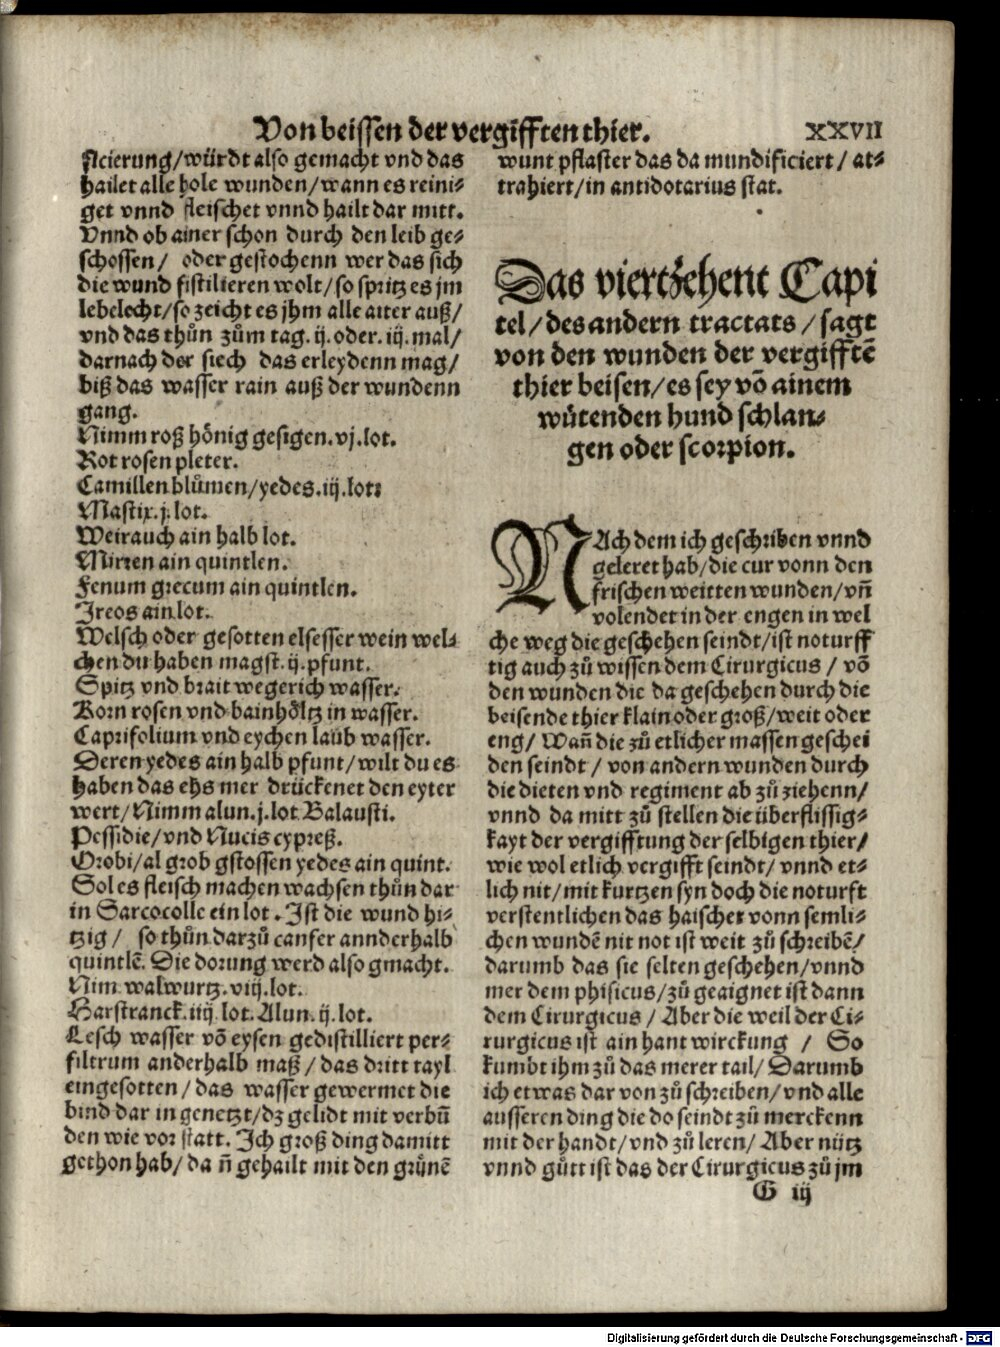 Von beissen der vergifften thier. XXVII
ficierung/würdt also gemacht vnd das
hailet alle hole wunden/wann es reini-
get vnnd fleischet vnnd hailt dar mitt.
Vnnd ob ainer schon durch den leib ge-
schossen/ oder gestochenn wer das sich
die wund fistilieren wolt/so spritz es jm
lebelecht/so zeicht es jhm alle aiter auß/
vnd das thůn zům tag. ij. oder. iij. mal/
darnach der siech das erleydenn mag/
biß das wasser rain auß der wundenn
gang.
Nimm roß hönig gesigen. vj. lot.
Rot rosen pleter.
Camillen blůmen/yedes. iij. lot:
Mastix. j. lot.
Weirauch ain halb lot.
Mirren ain quintlen.
Fenum grecum ain quintlen.
Jreos ain lot.
Welsch oder gesotten elsesser wein wel-
chen du haben magst. ij. pfunt.
Spitz vnd brait wegerich wasser.
Korn rosen vnd bainhöltz in wasser.
Caprifolium vnd eychen laůb wasser.
Deren yedes ain halb pfunt/wilt du es
haben das ehs mer drückenet den eyter
wert/Nimm alun. j. lot Balausti.
Pessidie/vnd Nucis cypreß.
Orobi/al grob gstossen yedes ain quint.
Sol es fleisch machen wachsen thůn dar
in Sarcocolle ein lot. Ist die wund hi-
tzig/ so thůn darzů canfer annderhalb
quintlē. Die dorung werd also gmacht.
Nim walwurtz. viij. lot.
Harstranck. iiij. lot. Alun. ij. lot.
Lesch wasser vō eysen gedistilliert per-
filtrum anderhalb maß/das dritt tayl
eingesotten/das wasser gewermet die
bind dar in genetzt/dz gelidt mit verbū
den wie vor statt. Ich groß ding damitt
gethon hab/da ñ gehailt mit den grůnē
wunt pflaster das da mundificiert/at-
trahiert/in antidotarius stat.
Das viertzehent Capi
tel/des andern tractats/sagt
von den wunden der vergifftē
thier beisen/es sey vō ainem
wůtenden hund schlan-
gen oder scorpion.
NAch dem ich geschriben vnnd
geleret hab/die cur vonn den
frischen weitten wunden/vñ
volendet in der engen in wel
che weg die geschehen seindt/ist noturff
tig auch zů wissen dem Cirurgicus/vō
den wunden die da geschehen durch die
beisende thier klain oder groß/weit oder
eng/ Wañ die zů etlicher massen geschei
den seindt/ von andern wunden durch
die dieten vnd regiment ab zů ziehenn/
vnnd da mitt zů stellen die überflissig-
kayt der vergifftung der selbigen thier/
wie wol etlich vergifft seindt/vnnd et-
lich nit/mit kurtzen syn doch die noturft
verstentlichen das haischer vonn semli-
chen wundē nit not ist weit zů schreibē/
darumb das sie selten geschehen/vnnd
mer dem phisicus/zů geaignet ist dann
dem Cirurgicus/ Aber die weil der Ci-
rurgicus ist ain hant wirckung / So
kumbt ihm zů das merer tail/Darumb
ich etwas dar von zů schreiben/vnd alle
ausseren ding die do seindt zů merckenn
mit der handt/vnd zů leren/ Aber nütz
vnnd gůtt ist das der Cirurgicus zů jm
G iij
Digitalisierung gefördert durch die Deutsche Forschungsgemeinschaft - DFG